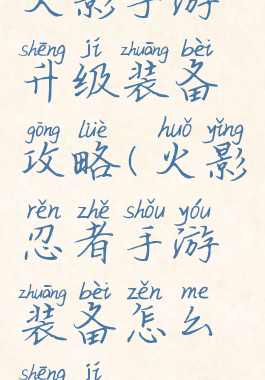 火影手游
shēng jí zhuāng bèi
升级装备
gōng lüè huǒ yǐng
攻略(火影
rěn zhě shǒu yóu
忍者手游
zhuāng bèi zěn me
装备怎么
shēng jí